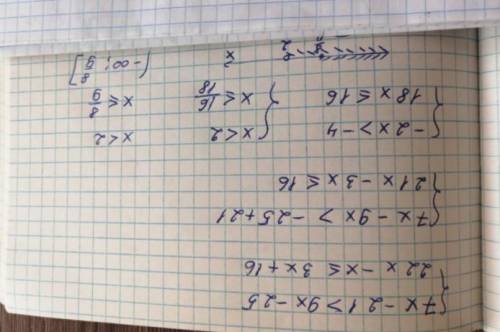 { 7x - 21 > 9x - 25
22x - x ≤ 3x + 16
{ 7x - 9x > -25 + 21
21x - 3x ≤ 16
{ -2x > -4 { x < 2 x < 2
18x ≤ 16 x ≤ 16/18 x ≤ 8/9
8/9 2 x (-∞; 8/9]